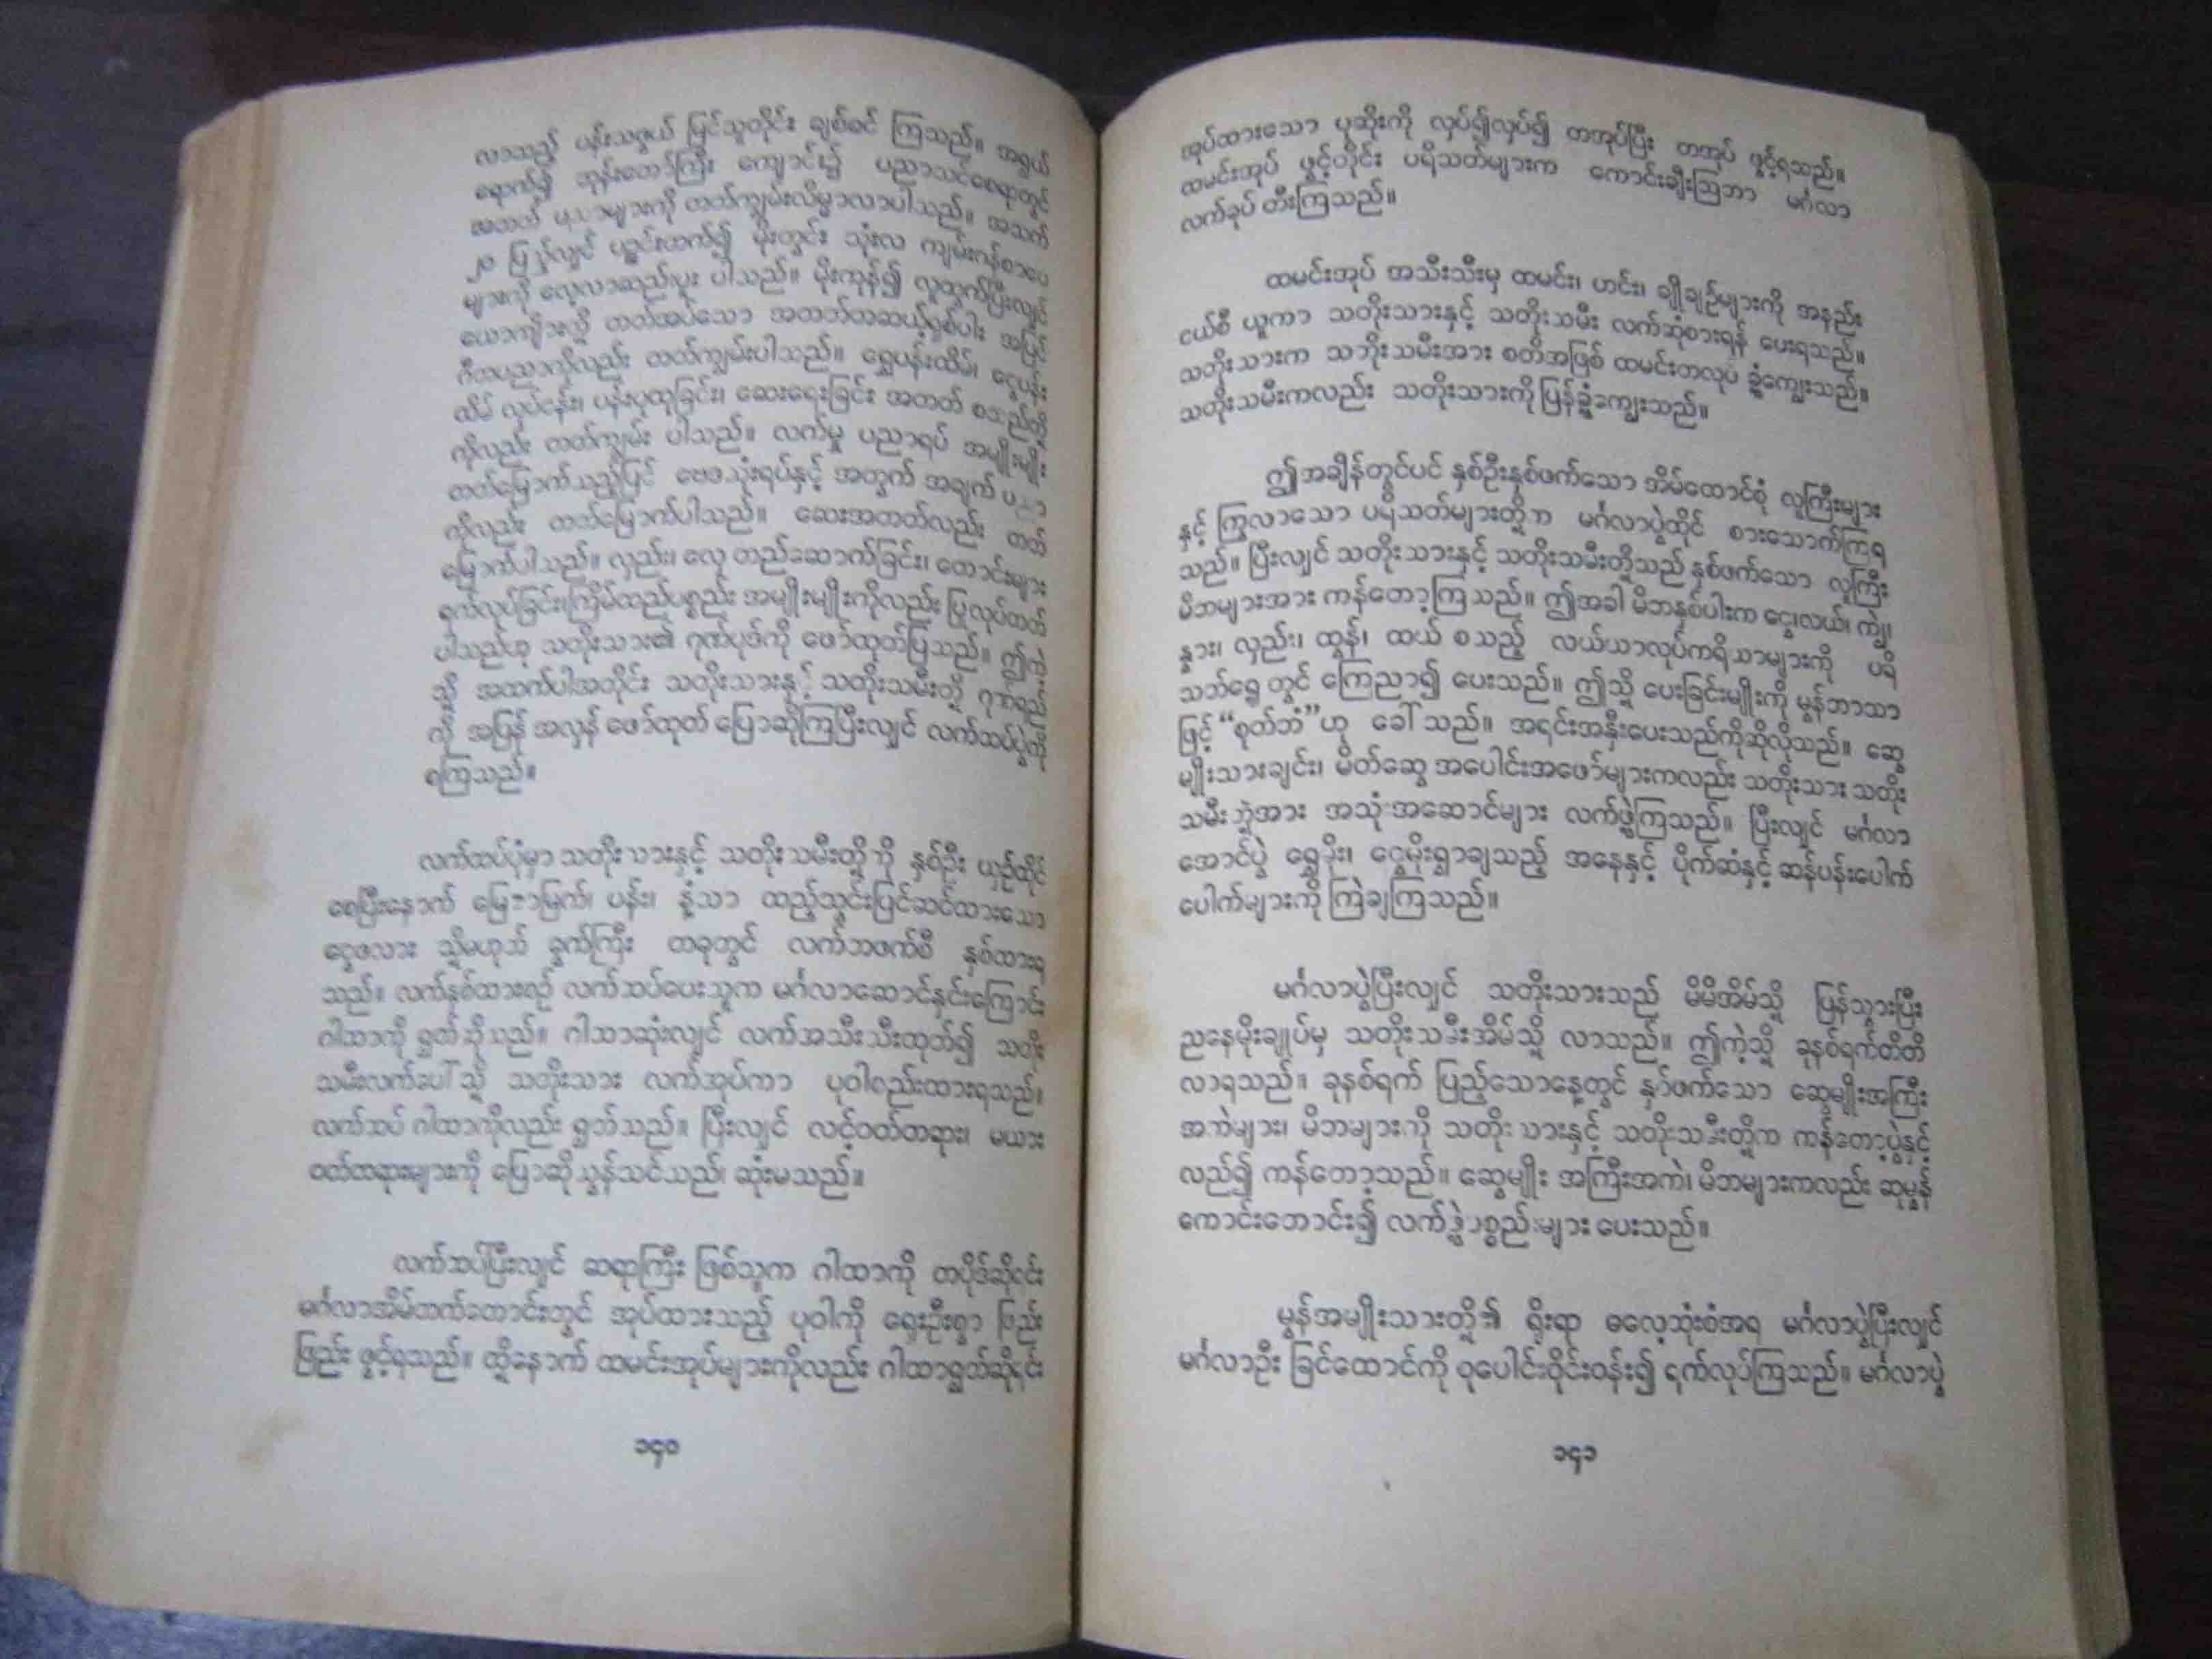 လာသည့် ပန်းသဖွယ် မြင်သူတိုင်း ချစ်ခင် ကြသည်။ အရွယ်
ရောက်၍ ဘုန်းတော်ကြီး ကျောင်း၌ ပညာသင်စေရာတွင်
အတတ် ပညာများကို တတ်ကျွမ်းလိမ္မာလာပါသည်။ အသက်
၂၀ ပြည့်လျှင် ပဉ္စင်းတက်၍ မိုးတွင်း သုံးလ ကျမ်းဂန်စာပေ
များကို လေ့လာဆည်းပူး ပါသည်။ မိုးကုန်၍ လူထွက်ပြီးလျှင်
ယောက်ျားတို့ တတ်အပ်သော အတတ်တဆယ့်ရှစ်ပါး အပြင်
ဂီတပညာကိုလည်း တတ်ကျွမ်းပါသည်။ ရွှေပန်းထိမ်၊ ငွေပန်း
ထိမ် လုပ်ငန်း၊ ပန်းပုထုခြင်း၊ ဆေးရေးခြင်း အတတ် စသည်တို့
ကိုလည်း တတ်ကျွမ်း ပါသည်။ လက်မှု ပညာရပ် အမျိုးမျိုး
တတ်မြောက်သည့်ပြင် ဗေဒသုံးရပ်နှင့် အတွက် အချက် ပညာ
ကိုလည်း တတ်မြောက်ပါသည်။ ဆေးအတတ်လည်း တတ်
မြောက်ပါသည်။ လှည်း၊ လှေ တည်ဆောက်ခြင်း၊ တောင်းများ
ရက်လုပ်ခြင်း၊ ကြိမ်ထည်ပစ္စည်း အမျိုးမျိုးကိုလည်း ပြုလုပ်တတ်
ပါသည်ဟု သတိုးသား၏ ဂုဏ်ပုဒ်ကို ဖော်ထုတ်ပြသည်။ ဤကဲ့
သို့ အထက်ပါအတိုင်း သတိုးသားနှင့် သတိုးသမီးတို့ ဂုဏ်ရည်
ကို အပြန် အလှန် ဖော်ထုတ် ပြောဆိုကြပြီးလျှင် လက်ထပ်ပွဲကို
ရကြသည်။
လက်ထပ်ပုံမှာ သတိုးသားနှင့် သတိုးသမီးတို့ကို နှစ်ဦး ယှဉ်ထိုင်
စေပြီးနောက် မြေဇာမြက်၊ ပန်း၊ နံ့သာ ထည့်သွင်းပြင်ဆင်ထားသော
ငွေဖလား သို့မဟုတ် ခွက်ကြီး တခုတွင် လက်တဖက်စီ နှစ်ထားရ
သည်။ လက်နှစ်ထားစဉ် လက်ထပ်ပေးသူက မင်္ဂလာဆောင်နှင်းကြောင်း
ဂါထာကို ရွတ်ဆိုသည်။ ဂါထာဆုံးလျှင် လက်အသီးသီးထုတ်၍ သတိုး
သမီးလက်ပေါ်သို့ သတိုးသား လက်အုပ်ကာ ပုဝါစည်းထားရသည်။
လက်ထပ် ဂါထာကိုလည်း ရွတ်သည်။ ပြီးလျှင် လင့်ဝတ်တရား၊ မယား
ဝတ်တရားများကို ပြောဆို သွန်သင်သည်၊ ဆုံးမသည်။
လက်ထပ်ပြီးလျှင် ဆရာကြီး ဖြစ်သူက ဂါထာကို တပိုဒ်ဆိုရင်း
မင်္ဂလာအိမ်ထက်တောင်းတွင် အုပ်ထားသည့် ပုဝါကို ရှေးဦးစွာ ဖြည်း
ဖြည်း ဖွင့်ရသည်။ ထို့နောက် ထမင်းအုပ်များကိုလည်း ဂါထာရွတ်ဆိုရင်း
၁၄၀
အုပ်ထားသော ပုဆိုးကို လှပ်၍လှပ်၍ တအုပ်ပြီး တအုပ် ဖွင့်ရသည်။
ထမင်းအုပ် ဖွင့်တိုင်း ပရိသတ်များက ကောင်းချီးဩဘာ မင်္ဂလာ
လက်ခုပ် တီးကြသည်။
ထမင်းအုပ် အသီးသီးမှ ထမင်း၊ ဟင်း၊ ချိုချဉ်များကို အနည်း
ငယ်စီ ယူကာ သတိုးသားနှင့် သတိုးသမီး လက်ဆုံစားရန် ပေးရသည်။
သတိုးသားက သတိုးသမီးအား စတိအဖြစ် ထမင်းတလုပ် ခွံ့ကျွေးသည်။
သတိုးသမီးကလည်း သတိုးသားကို ပြန်ခွံ့ကျွေးသည်။
ဤအချိန်တွင်ပင် နှစ်ဦးနှစ်ဖက်သော အိမ်ထောင်စုံ လူကြီးများ
နှင့် ကြွလာသော ပရိသတ်များတို့က မင်္ဂလာပွဲထိုင် စားသောက်ကြရ
သည်။ ပြီးလျှင် သတိုးသားနှင့် သတိုးသမီးတို့သည် နှစ်ဖက်သော လူကြီး
မိဘများအား ကန်တော့ကြသည်။ ဤအခါ မိဘနှစ်ပါးက ငွေ၊ လယ်၊ ကျွဲ၊
နွား၊ လှည်း၊ ထွန်၊ ထယ် စသည့် လယ်ယာလုပ်ကရိယာများကို ပရိ
သတ်ရှေ့တွင် ကြေညာ၍ ပေးသည်။ ဤသို့ ပေးခြင်းမျိုးကို မွန်ဘာသာ
ဖြင့် “စုတ်ဘံ” ဟု ခေါ်သည်။ အရင်းအနှီးပေးသည်ကိုဆိုလိုသည်။ ဆွေ
မျိုးသားချင်း၊ မိတ်ဆွေ အပေါင်းအဖော်များကလည်း သတိုးသား သတိုး
သမီးတို့အား အသုံးအဆောင်များ လက်ဖွဲ့ကြသည်။ ပြီးလျှင် မင်္ဂလာ
အောင်ပွဲ ရွှေမိုး၊ ငွေမိုးရွာချသည့် အနေနှင့် ပိုက်ဆံနှင့် ဆန်ပန်းပေါက်
ပေါက်များကို ကြဲချကြသည်။
မင်္ဂလာပွဲပြီးလျှင် သတိုးသားသည် မိမိအိမ်သို့ ပြန်သွားပြီး
ညနေမိုးချုပ်မှ သတိုးသမီးအိမ်သို့ လာသည်။ ဤကဲ့သို့ ခုနစ်ရက်တိတိ
လာရသည်။ ခုနစ်ရက် ပြည့်သောနေ့တွင် နှစ်ဖက်သော ဆွေမျိုးအကြီး
အကဲများ၊ မိဘများကို သတိုးသားနှင့် သတိုးသမီးတို့က ကန်တော့ပွဲနှင့်
လည်၍ ကန်တော့သည်။ ဆွေမျိုး အကြီးအကဲ၊ မိဘများကလည်း ဆုမွန်
ကောင်းတောင်း၍ လက်ဖွဲ့ပစ္စည်းများ ပေးသည်။
မွန်အမျိုးသားတို့၏ ရိုးရာ ဓလေ့ထုံးစံအရ မင်္ဂလာပွဲပြီးလျှင်
မင်္ဂလာဦး ခြင်ထောင်ကို စုပေါင်းဝိုင်းဝန်း၍ ရက်လုပ်ကြသည်။ မင်္ဂလာပွဲ
၁၄၁